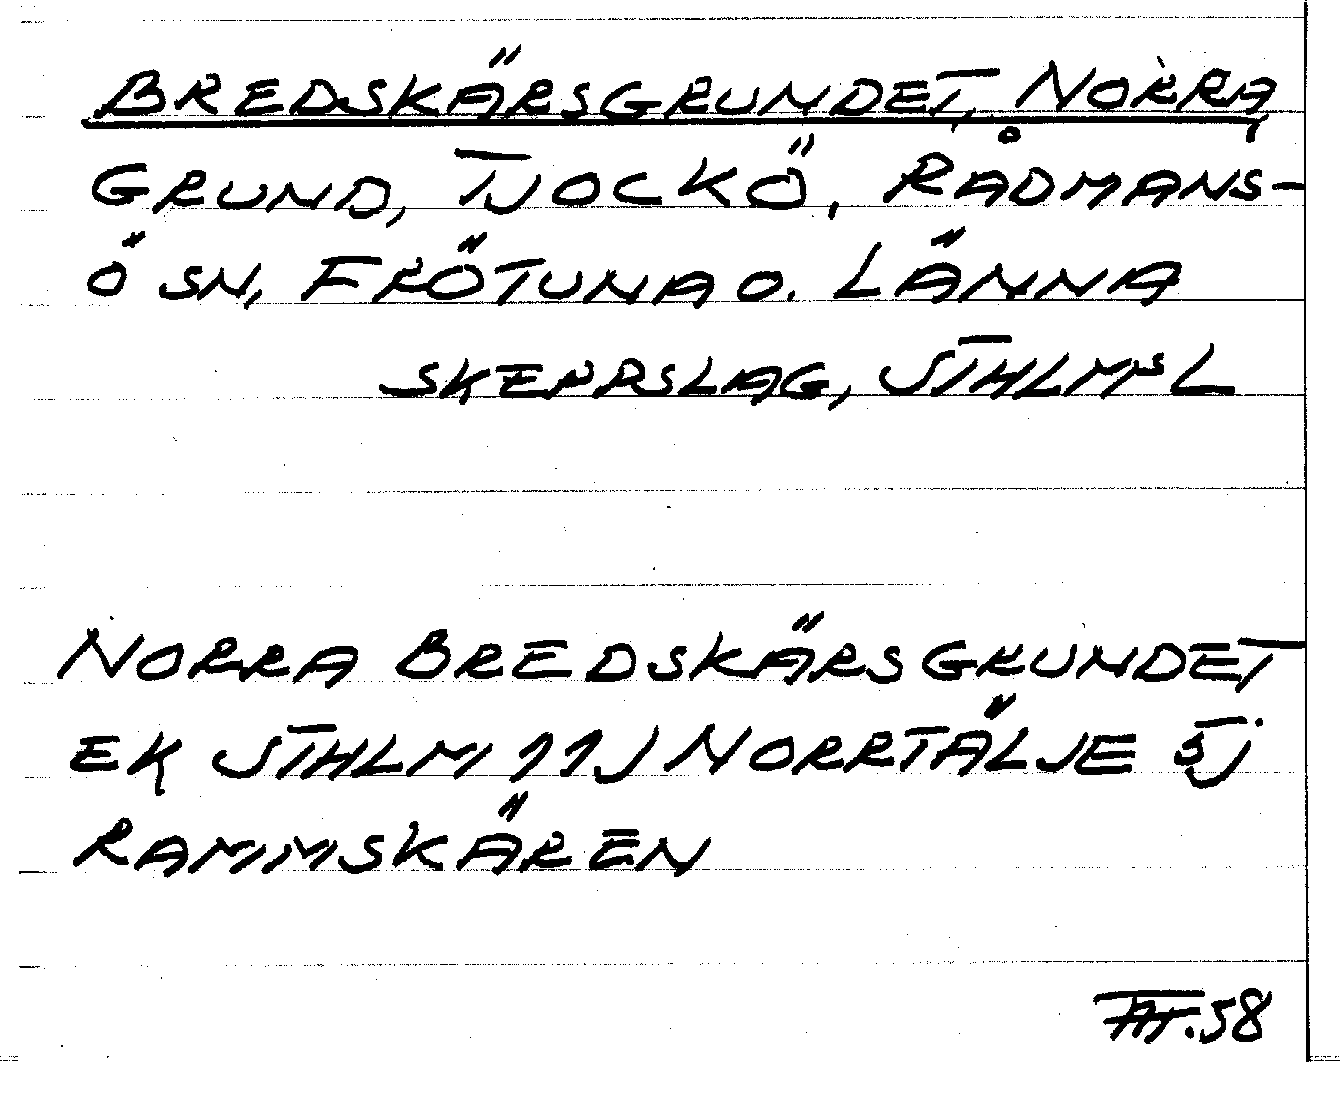 BREDSKÄRSGRUNDET, NORRA,
GRUND, TJOCKÖ, RÅDMANS-
Ö SN, FRÖTUNA O. LÄNNA
SKEPPSLAG, STHLMS L
NORRA BREDSKÄRSGRUNDET
EK STHLM 11J NORRTÄLJE 5J
RAMMSKÄREN
58